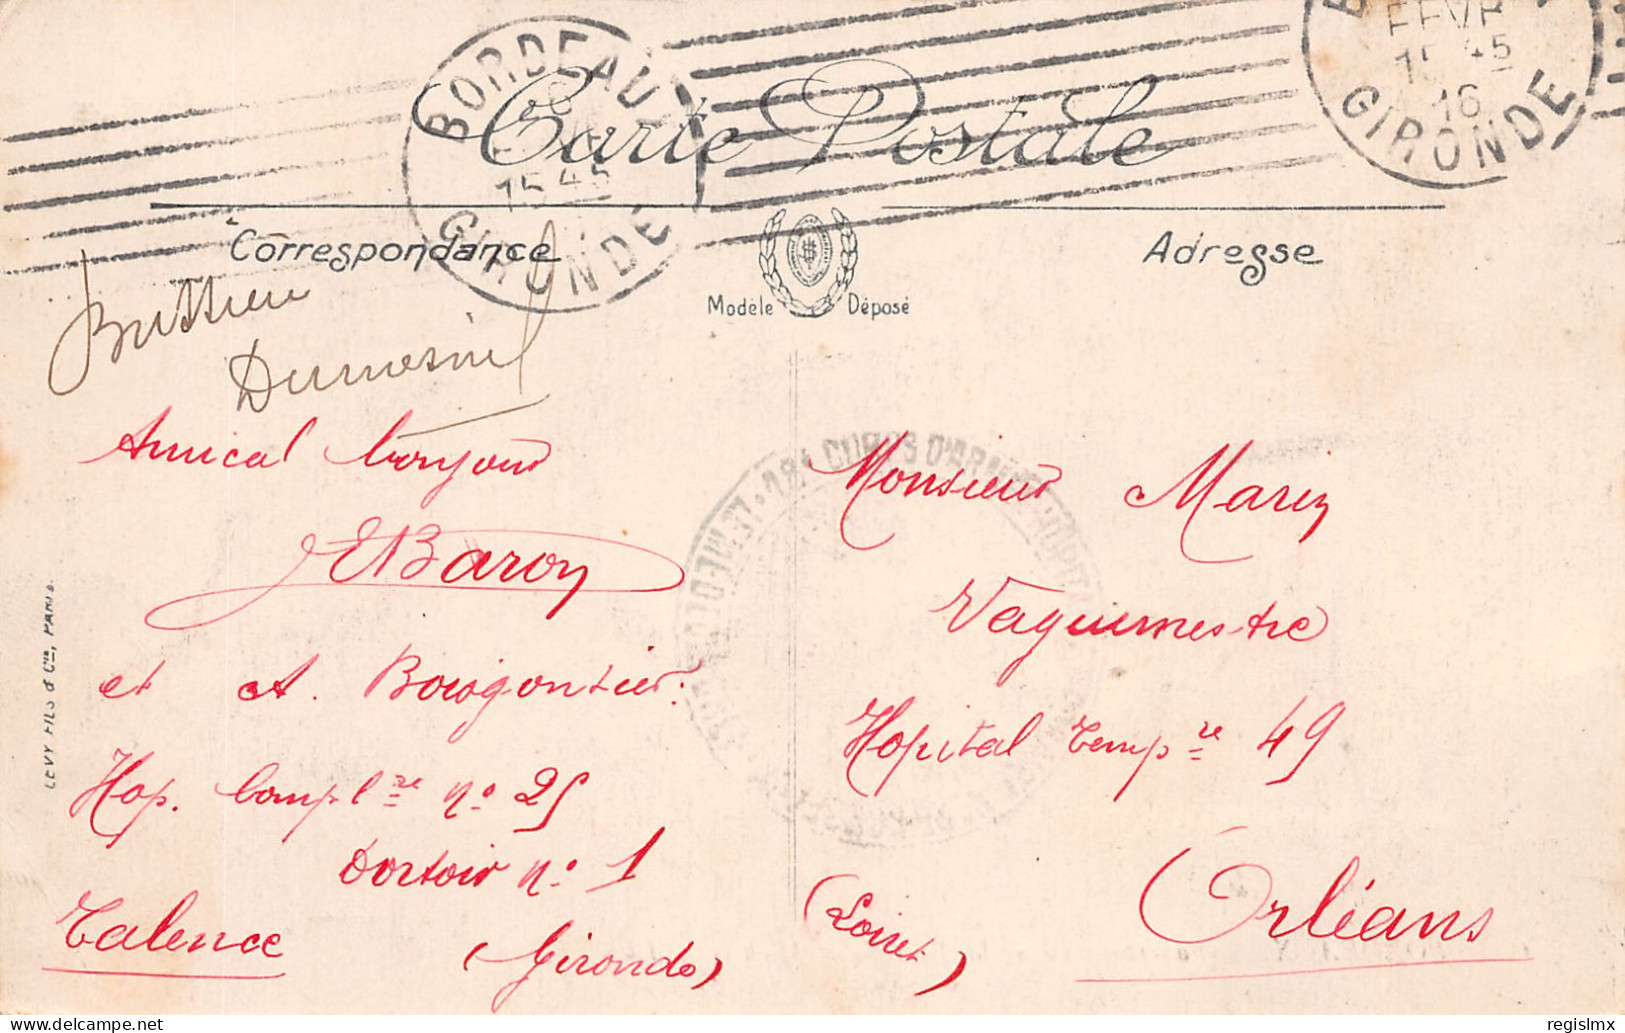 BORDEAUX
15 45
GIRONDE
FEVR
15 45
16
GIRONDE
Carte Postale
Correspondance
Adresse
Modèle Déposé
Dumesnil
Amical bonjour
EBaron
et A. Bourgontier.
Hop. Compl.re n° 25
Dortoir n° 1
Talence
(Gironde)
LEVY FILS & Cie, PARIS.
18e CORPS D'ARMÉE HOPITAL
Monsieur Marin
Vaguemestre
Hopital Temp.re 49
Orléans
(Loiret)
regislmx